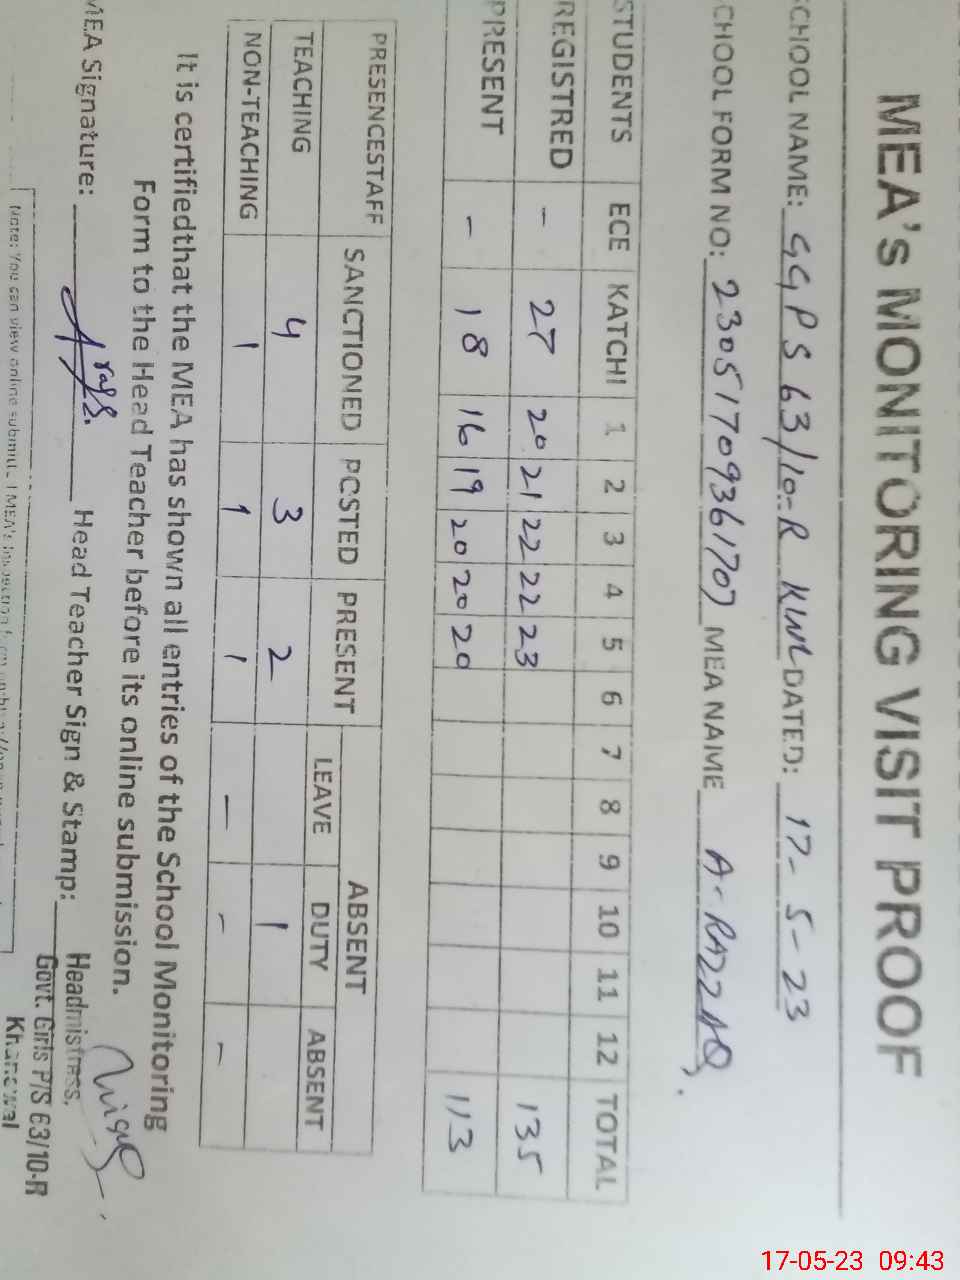 MEA's MONITORING VISIT PROOF
SCHOOL NAME: GGPS 63/10-R KWL DATED: 17-5-23
SCHOOL FORM NO: 23051709361707 MEA NAME A-RAZZAQ
STUDENTS ECE KATCHI 1 2 3 4 5 6 7 8 9 10 11 12 TOTAL
REGISTRED - 27 20 21 22 22 23 135
PRESENT - 18 16 19 20 20 20 113
PRESENCESTAFF SANCTIONED POSTED PRESENT ABSENT
LEAVE DUTY ABSENT
TEACHING 4 3 2 1
NON-TEACHING 1 1 1 - - -
It is certifiedthat the MEA has shown all entries of the School Monitoring
Form to the Head Teacher before its online submission.
MEA Signature: Head Teacher Sign & Stamp:
Headmistress,
Govt. Girls P/S 63/10-R
Khanewal
Note: You can view online submitted MEA's Inspection form
17-05-23 09:43